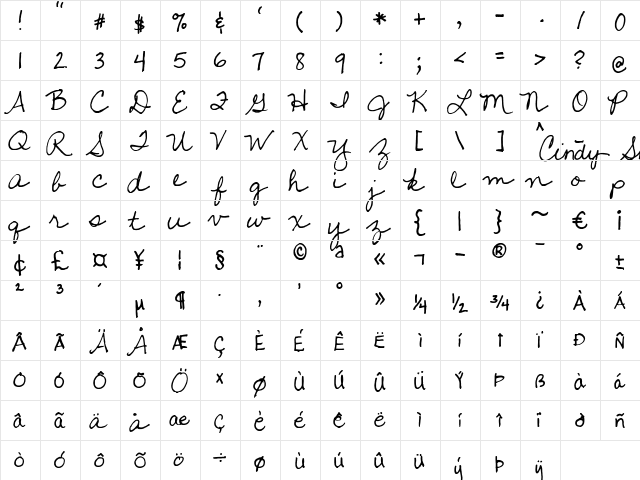 ! " # $ % & ' ( ) * + , - . / 0
1 2 3 4 5 6 7 8 9 : ; < = > ? @
A B C D E F G H I J K L M N O P
Q R S T U V W X Y Z [ \ ] ^ _ Cindy
a b c d e f g h i j k l m n o p
q r s t u v w x y z { | } ~ € ¡
¢ £ ¤ ¥ ¦ § ¨ © ª « ¬ - ® ¯ ° ±
² ³ ´ µ ¶ · ¸ ¹ º » ¼ ½ ¾ ¿ À Á
Â Ã Ä Å Æ Ç È É Ê Ë Ì Í Î Ï Ð Ñ
Ò Ó Ô Õ Ö × Ø Ù Ú Û Ü Ý Þ ß à á
â ã ä å æ ç è é ê ë ì í î ï ð ñ
ò ó ô õ ö ÷ ø ù ú û ü ý þ ÿ